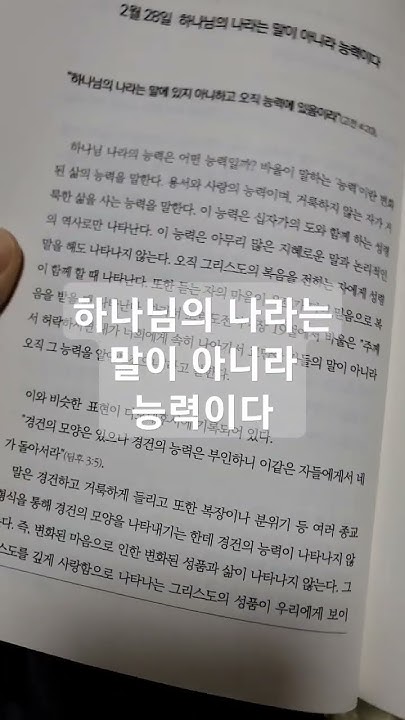 2월 28일 하나님의 나라는 말이 아니라 능력이다
"하나님의 나라는 말에 있지 아니하고 오직 능력에 있음이라"(고전 4:20).
하나님 나라의 능력은 어떤 능력입까? 바울이 말하는 '능력'이란 변화
된 삶의 능력을 말한다. 용서와 사랑의 능력이며, 거룩하지 않는 자가 거
룩한 삶을 사는 능력을 말한다. 이 능력은 십자가의 도와 함께 하는 성령
의 역사로만 나타난다. 이 능력은 아무리 많은 지혜로운 말과 논리적인
말을 해도 나타나지 않는다. 오직 그리스도의 복음을 전하는 자에게 성령
이 함께 할 때 나타난다. 또한 듣는 자의 마음이 믿음으로 복
음을 받을 바울은 "주께
서 허락하시면 내가 너희에게 속히 나아가서 말이 아니라
오직 그 능력을
하나님의 나라는
말이 아니라
능력이다
이와 비슷한 표현이 기록되어 있다.
"경건의 모양은 있으나 경건의 능력은 부인하니 이같은 자들에게서 네
가 돌아서라"(딤후 3:5).
말은 경건하고 거룩하게 들리고 또한 복장이나 분위기 등 여러 종교
형식을 통해 경건의 모양을 나타내기는 한데 경건의 능력이 나타나지 않
다. 즉, 변화된 마음으로 인한 변화된 성품과 삶이 나타나지 않는다. 그
스도를 깊게 사랑함으로 나타나는 그리스도의 성품이 우리에게 보이